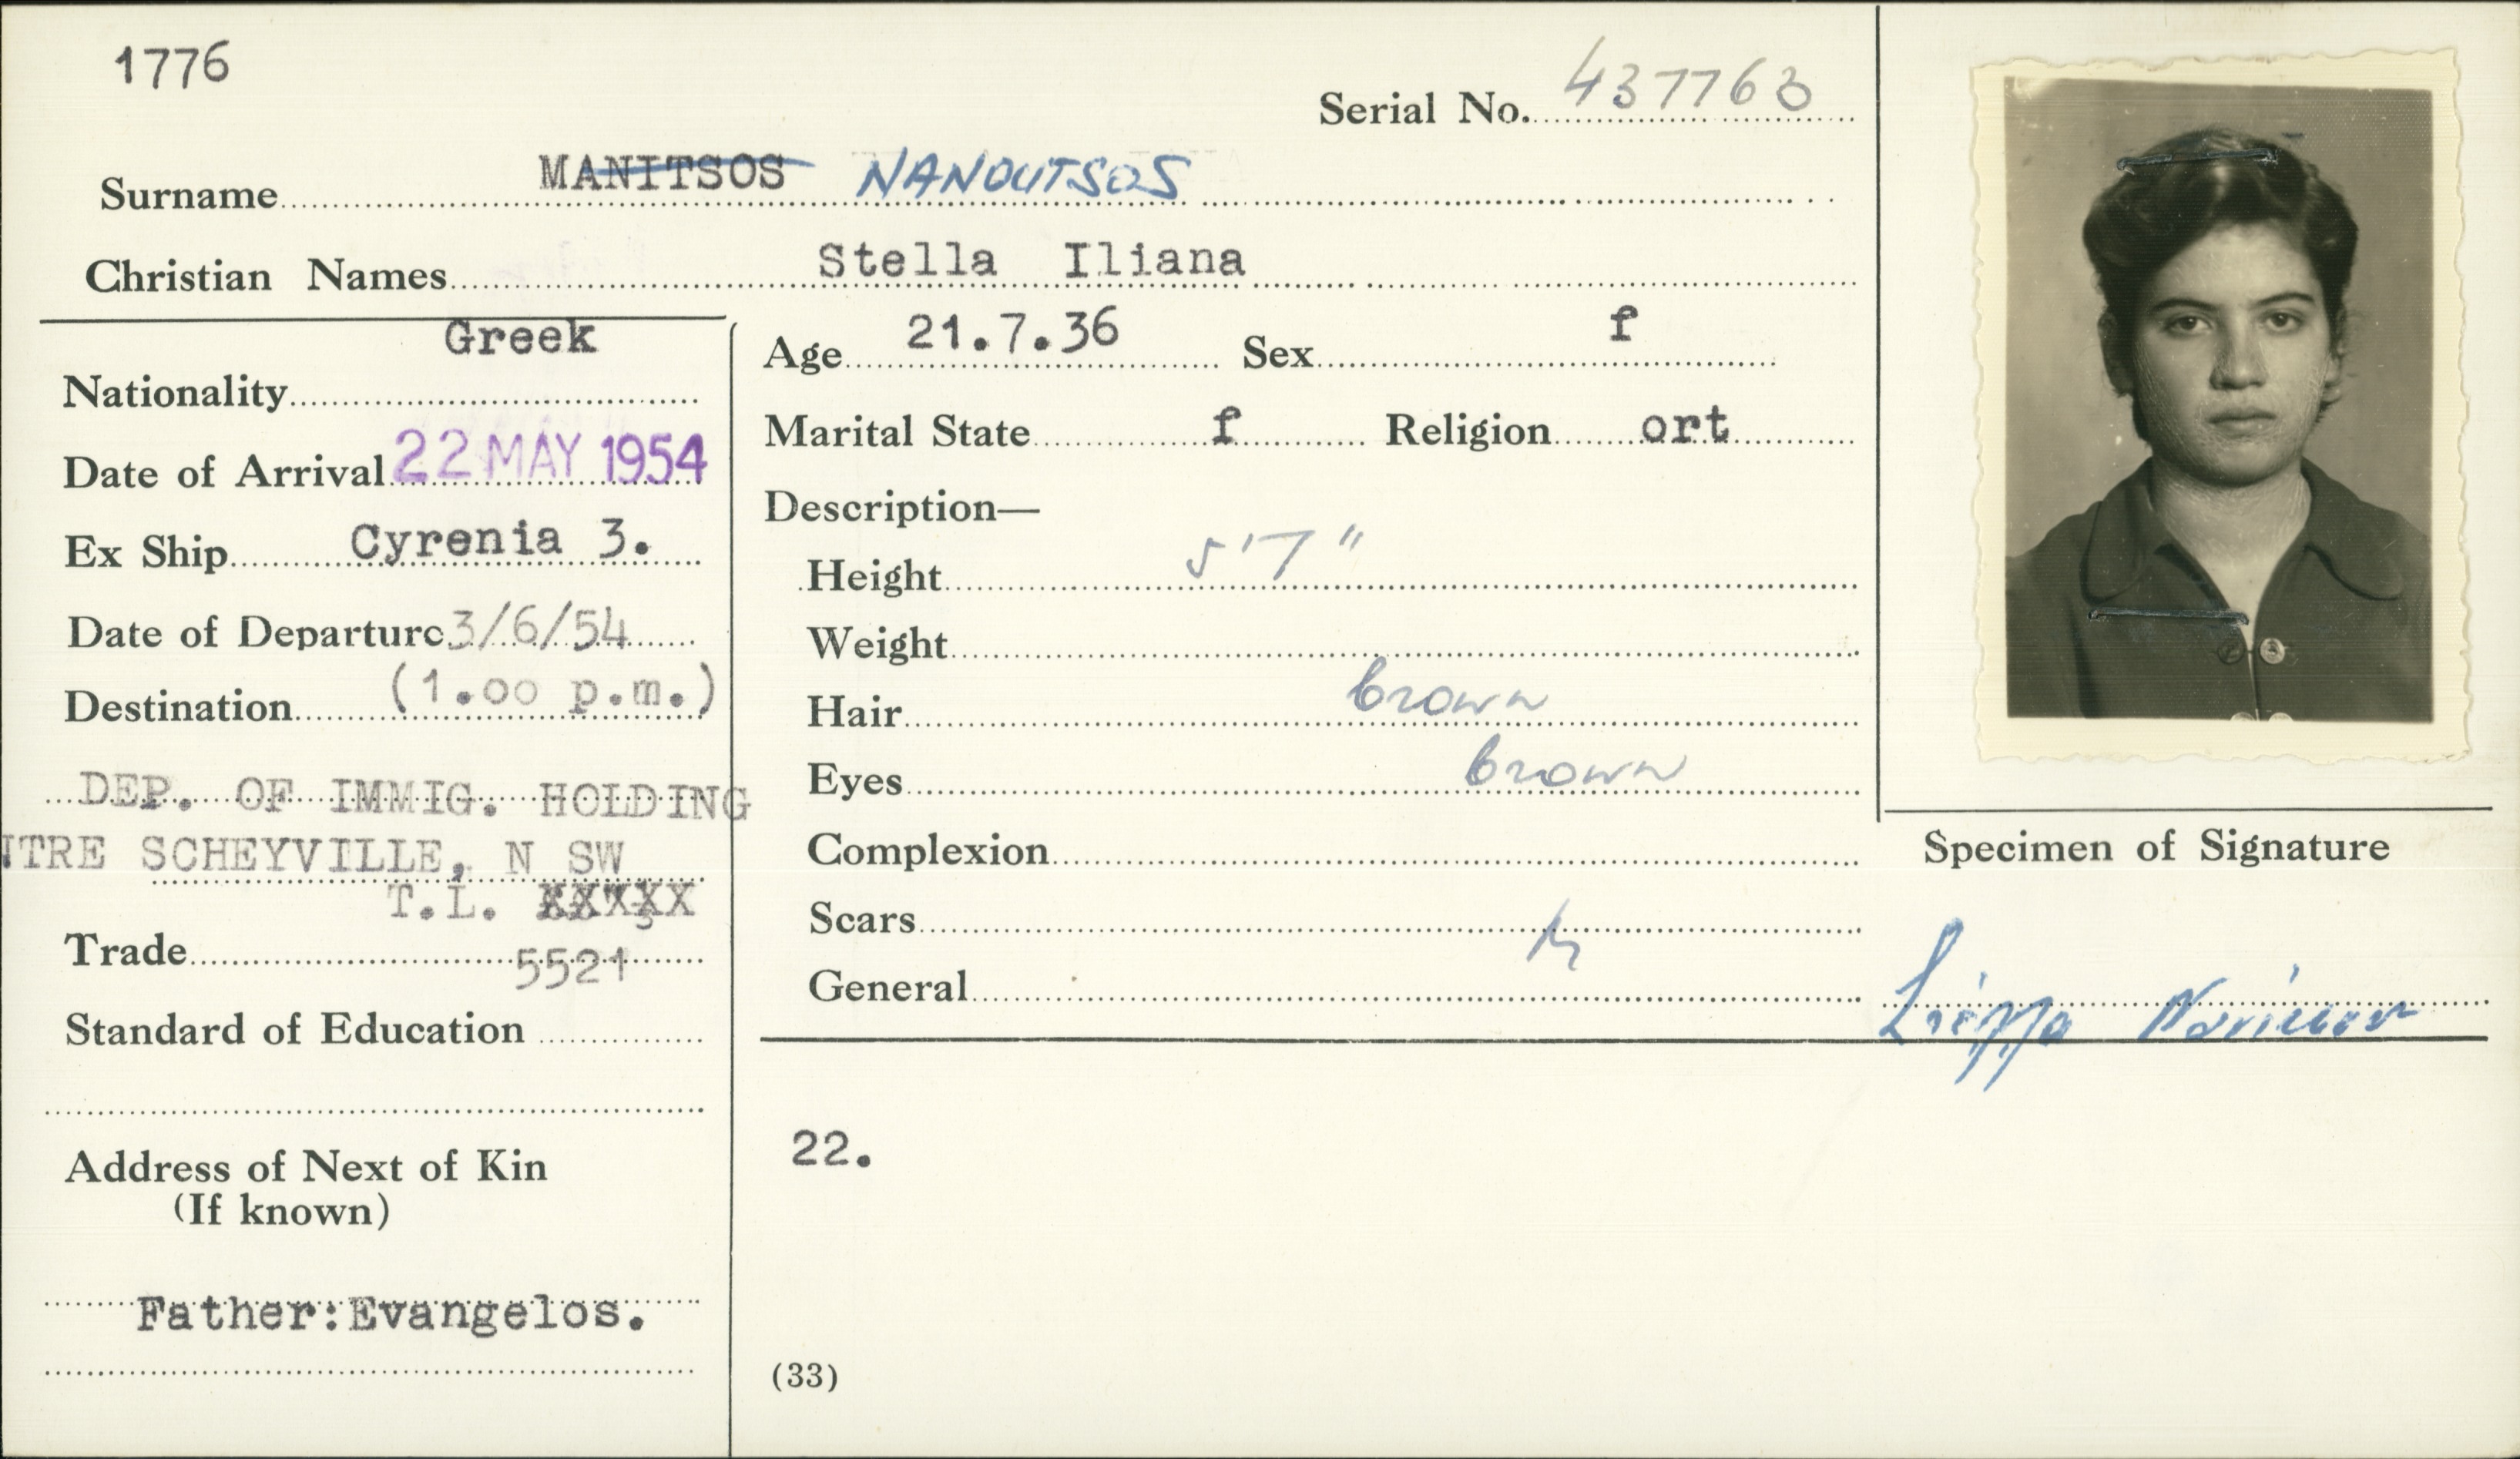 1776
Serial No. 437763
Surname MANITSOS NANOUTSOS
Christian Names Stella Iliana
Greek
Nationality
Date of Arrival 22 MAY 1954
Ex Ship Cyrenia 3.
Date of Departure 3/6/54
Destination (1.oo p.m.)
DEP. OF IMMIG. HOLDING
NTRE SCHEYVILLE, N SW
T.L. XXXXX
Trade 5521
Standard of Education
Address of Next of Kin
(If known)
Father:Evangelos.
Age 21.7.36 Sex f
Marital State f Religion ort
Description—
Height 5'7"
Weight
Hair brown
Eyes brown
Complexion
Scars
General
22.
(33)
Specimen of Signature